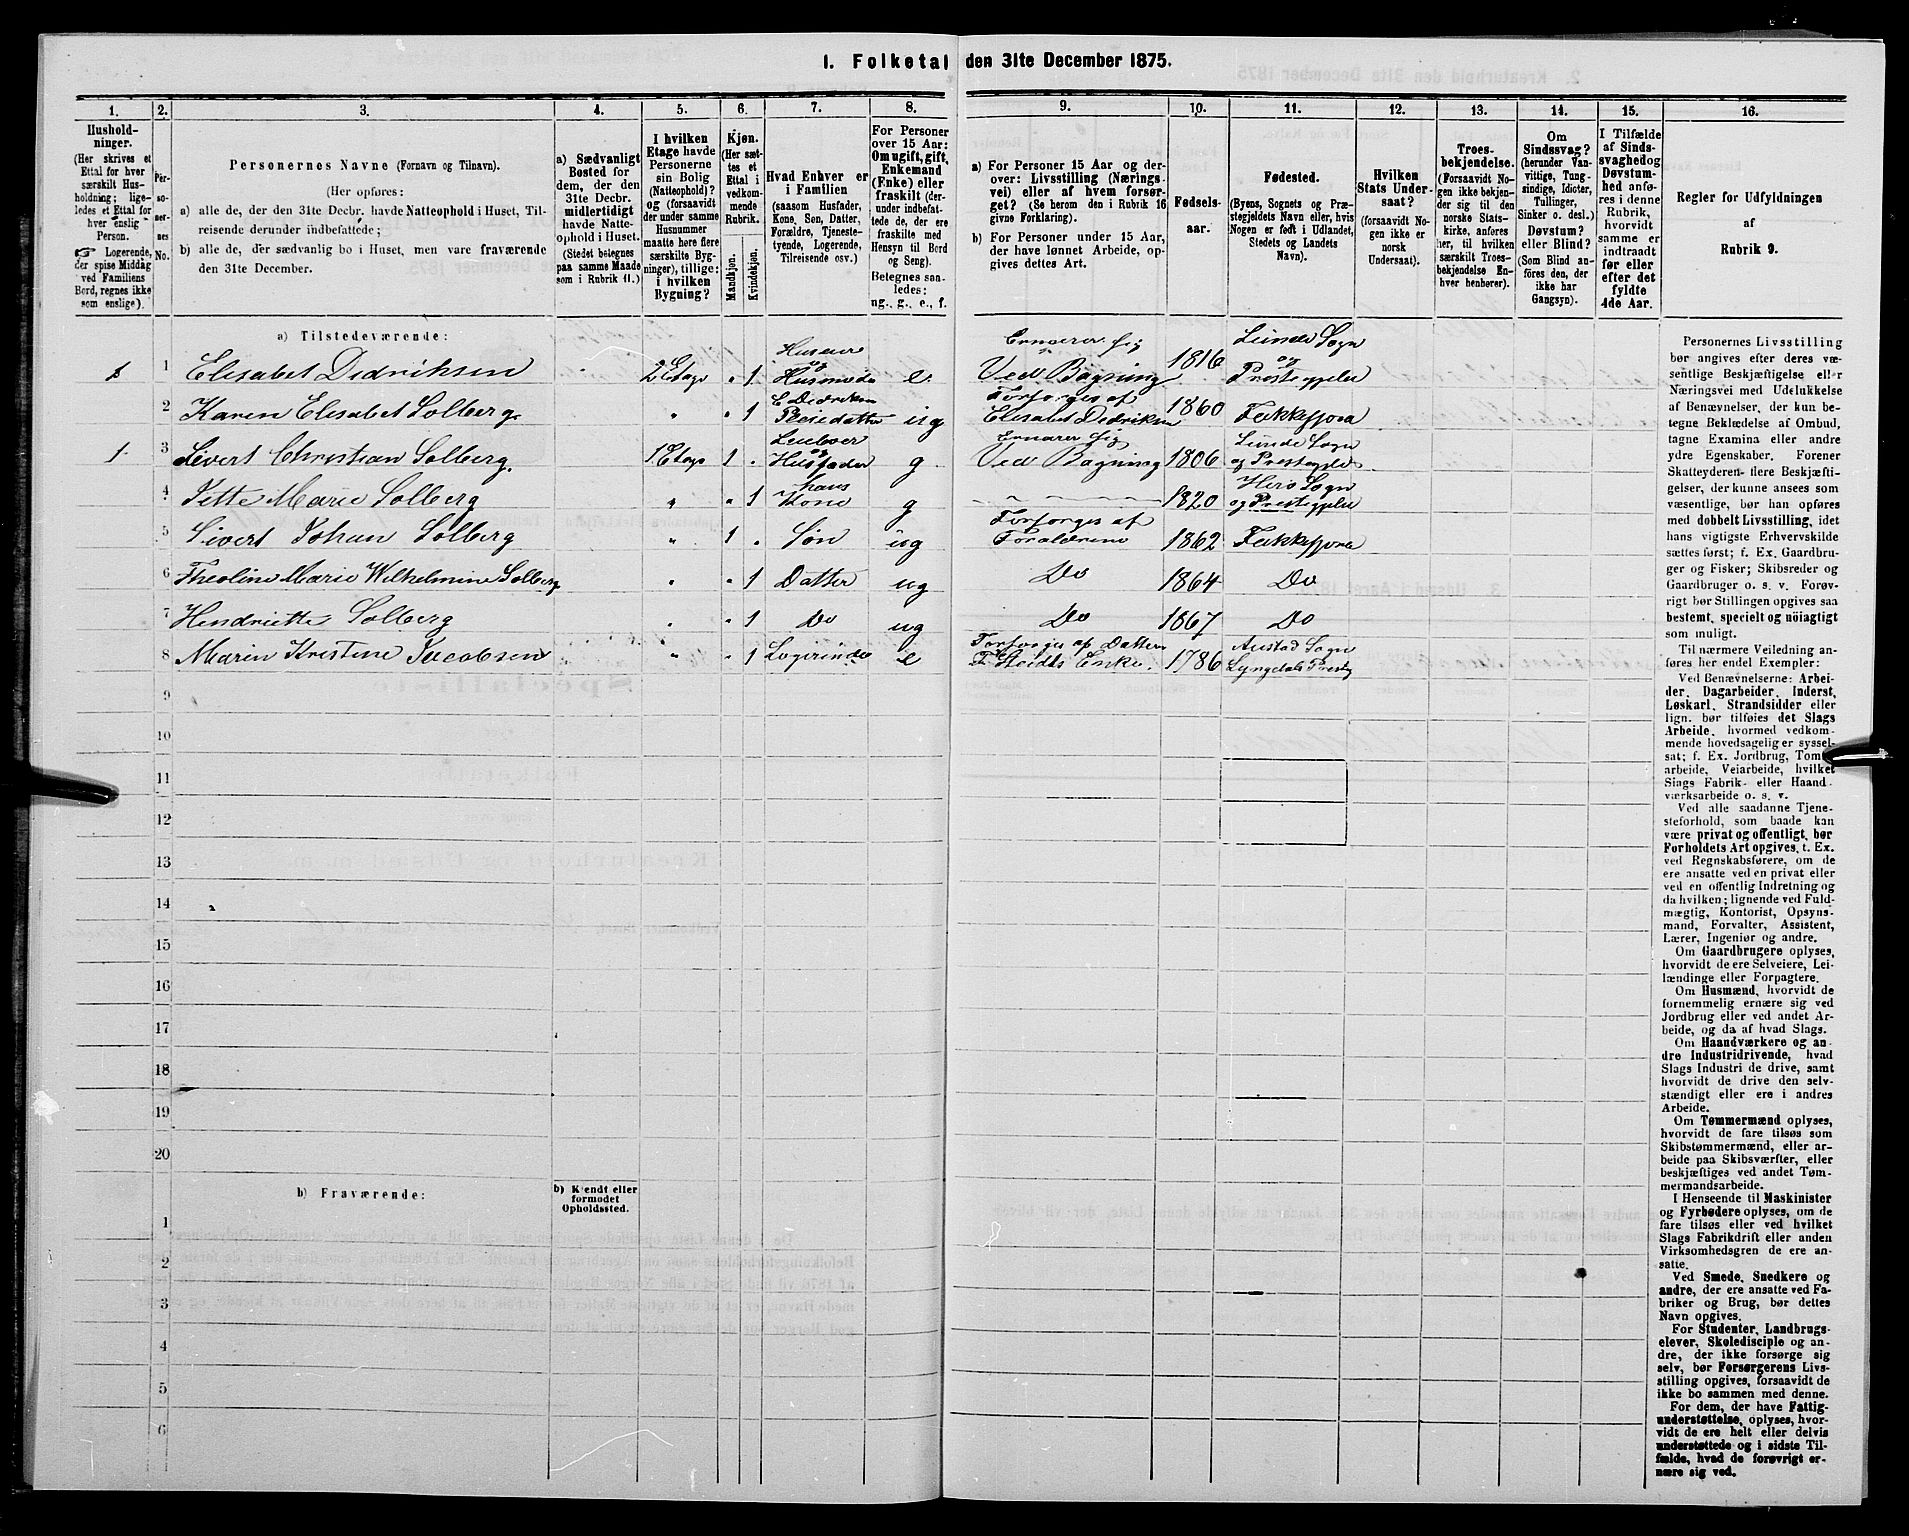 1. Folketal den 31te December 1875.
1.
2.
3.
4.
5.
6.
7.
8.
9.
10.
11.
12.
13.
14.
15.
16.
Hushold-
ninger.
(Her skrives et
Ettal for hver
særskilt Hus-
holdning; lige-
ledes et Ettal for
hver enslig
Person.
☞ Logerende,
der spise Middag
ved Familiens
Bord, regnes ikke
som enslige).
Per-
so-
ner-
nes
No.
Personernes Navne (Fornavn og Tilnavn).
(Her opføres:
a) alle de, der den 31te Decbr. havde Natteophold i Huset, Til-
reisende derunder indbefattede;
b) alle de, der sædvanlig bo i Huset, men vare fraværende
den 31te December.
a) Sædvanligt
Bosted for
dem, der den
31te Decbr.
midlertidigt
havde Natte-
ophold i Huset.
(Stedet betegnes
paa samme Maade
som i Rubrik 11.)
I hvilken
Etage havde
Personerne
sin Bolig
(Natteophold)?
og (forsaavidt
der under samme
Husnummer
maatte høre flere
særskilte Byg-
ninger), tillige:
i hvilken
Bygning?
Kjøn.
(Her sæt-
tes et
Ettal i
vedkom-
mende
Rubrik.
Mandkjøn.
Kvindekjøn.
Hvad Enhver er
i Familien
(saasom Husfader,
Kone, Søn, Datter,
Forældre, Tjeneste-
tyende, Logerende,
Tilreisende osv.)
For Personer
over 15 Aar:
Om ugift, gift,
Enkemand
(Enke) eller
fraskilt (der-
under indbefat-
tede de, der ere
fraskilte med
Hensyn til Bord
og Seng).
Betegnes saa-
ledes:
ug., g., e., f.
a) For Personer 15 Aar og der-
over: Livsstilling (Nærings-
vei) eller af hvem forsør-
get? (Se herom den i Rubrik 16
givne Forklaring).
b) For Personer under 15 Aar,
der have lønnet Arbeide, op-
gives dettes Art.
Fødsels-
aar.
Fødested.
(Byens, Sognets og Præ-
stegjeldets Navn eller, hvis
Nogen er født i Udlandet,
Stedets og Landets
Navn).
Hvilken
Stats Under-
saat?
(forsaavidt No-
gen ikke er
norsk
Undersaat).
Troes-
bekjendelse.
(Forsaavidt No-
gen ikke bekjen-
der sig til den
norske Stats-
kirke, anføres
her, til hvilken
særskilt Troes-
bekjendelse En-
hver henhører).
Om
Sindssvag?
(herunder Van-
vittige, Tung-
sindige, Idioter,
Tullinger,
Sinker o. desl.)
Døvstum?
eller Blind?
(Som Blind an-
føres den, der
ikke har
Gangsyn).
I Tilfælde
af Sinds-
svaghed og
Døvstum-
hed anfø-
res i denne
Rubrik,
hvorvidt
samme er
indtraadt
før eller
efter det
fyldte
4de Aar.
Regler for Udfyldningen
af
Rubrik 9.
a) Tilstedeværende:
1 1 Elisabet Dedriksen 2 Etage 1 Huseier og Husmoder e. Ernærer sig Ved Bagning 1816 Lunde Sogn og Prestegjeld
2 Karen Elisabet Solberg " 1 E. Dedriksen Pleiedatter ug Forsørges af Elisabet Dedriksen 1860 Flekkefjord
1. 3 Sivert Christian Solberg. 1 Etage 1 Leieboer og Husfader g. Ernærer sig Ved Bagning 1806 Lunde Sogn og Prestegjeld
4 Jette Marie Solberg " 1 hans Kone g 1820 Sogn og Prestegjeld
5 Sivert Johan Solberg " 1 Søn ug Forsørges af Forældrene 1862 Flekkefjord
6 Theoline Marie Wilhelmine Solberg " 1 Datter ug Do 1864 Do
7 Hendriette Solberg " 1 Do ug Do 1867 Do
8 Maren Kristine Jacobsen " 1 Logerinde e Forsørges af Datteren Enke. 1786 Austad Sogn Lyngdals Prestg
9
10
11
12
13
14
15
16
17
18
19
20
b) Fraværende:
b) Kjendt eller
formodet
Opholdssted.
1
2
3
4
5
6
Personernes Livsstilling
bør angives efter deres væ-
sentlige Beskjæftigelse eller
Næringsvei med Udelukkelse
af Benævnelser, der kun be-
tegne Beklædelse af Ombud,
tagne Examina eller andre
ydre Egenskaber. Forener
Skatteyderen flere Beskjæfti-
gelser, der kunne ansees som
væsentlige, bør han opføres
med dobbelt Livsstilling, idet
hans vigtigste Erhvervskilde
sættes først; f. Ex. Gaardbru-
ger og Fisker; Skibsreder og
Gaardbruger o. s. v. Forøv-
rigt bør Stillingen opgives saa
bestemt, specielt og nöiagtigt
som muligt.
Til nærmere Veiledning an-
føres her endel Exempler:
Ved Benævnelserne: Arbei-
der, Dagarbeider, Inderst,
Løskarl, Strandsidder eller
lign. bør tilføies det Slags
Arbeide, hvormed vedkom-
mende hovedsagelig er syssel-
sat; f. Ex. Jordbrug, Tomt-
arbeide, Veiarbeide, hvilket
Slags Fabrik- eller Haand-
værksarbeide o. s. v.
Ved alle saadanne Tjene-
steforhold, som baade kan
være privat og offentligt, bør
Forholdets Art opgives, t. Ex.
ved Regnskabsførere, om de
ere ansatte ved en privat eller
ved en offentlig Indretning og
da hvilken; lignende ved Fuld-
mægtig, Kontorist, Opsyns-
mand, Forvalter, Assistent,
Lærer, Ingeniør og andre.
Om Gaardbrugere oplyses,
hvorvidt de ere Selveiere, Lei-
lændinge eller Forpagtere.
Om Husmænd, hvorvidt de
fornemmelig ernære sig ved
Jordbrug eller ved andet Ar-
beide, og da af hvad Slags.
Om Haandværkere og an-
dre Industridrivende, hvad
Slags Industri de drive, samt
hvorvidt de drive den selv-
stændigt eller ere i andres
Arbeide.
Om Tømmermænd oplyses,
hvorvidt de fare tilsøs som
Skibstømmermænd, eller ar-
beide paa Skibsværfter, eller
beskjæftiges ved andet Tøm-
mermandsarbeide.
I Henseende til Maskinister
og Fyrbødere oplyses, om de
fare tilsøs eller ved hvilket
Slags Fabrikdrift eller anden
Virksomhedsgren de ere an-
satte.
Ved Smede, Snedkere og
andre, der ere ansatte ved Fa-
briker og Brug, bør dettes
Navn opgives.
For Studenter, Landbrugs-
elever, Skoledisciple og an-
dre, der ikke forsørge sig
selv, bør Forsørgerens Livs-
stilling opgives, forsaavidt de
ikke bo sammen med denne.
For dem, der have Fattig-
understøttelse, oplyses, hvor-
vidt de ere helt eller delvis
understøttede og i sidste Til-
fælde, hvad de forøvrigt er-
nære sig ved.